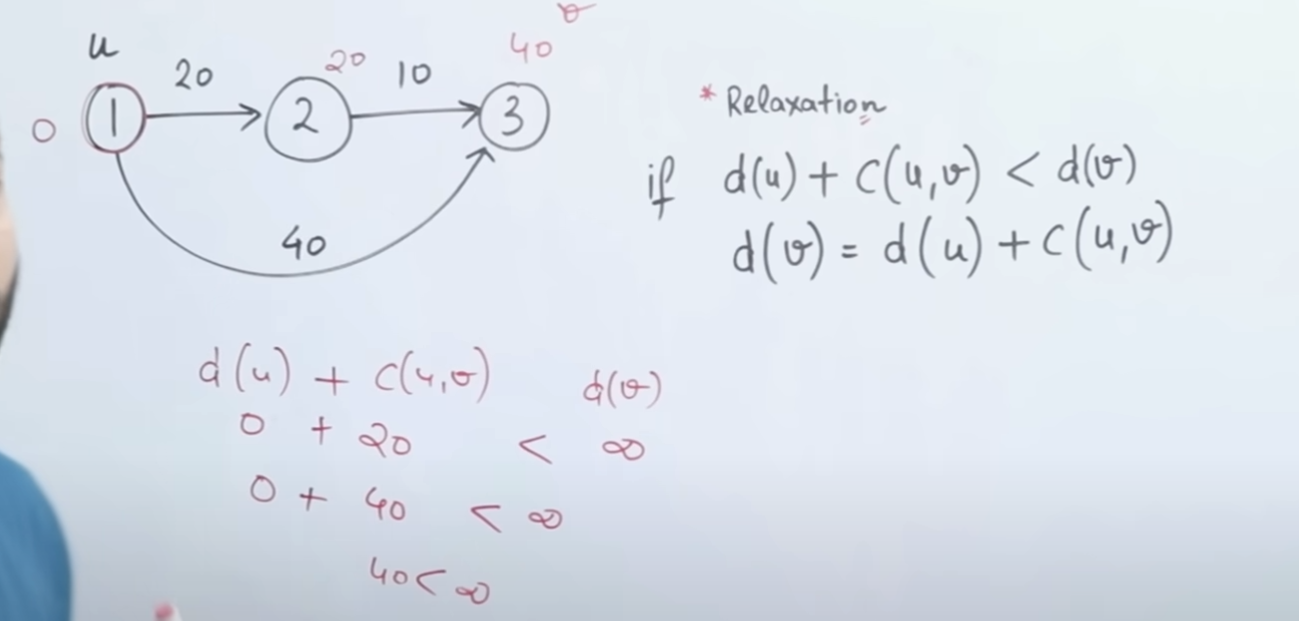 u
20
20
10
40
v
0
1
2
3
40
* Relaxation
if d(u) + c(u,v) < d(v)
d(v) = d(u) + c(u,v)
d(u) + c(u,v) d(v)
0 + 20 < ∞
0 + 40 < ∞
40 < ∞